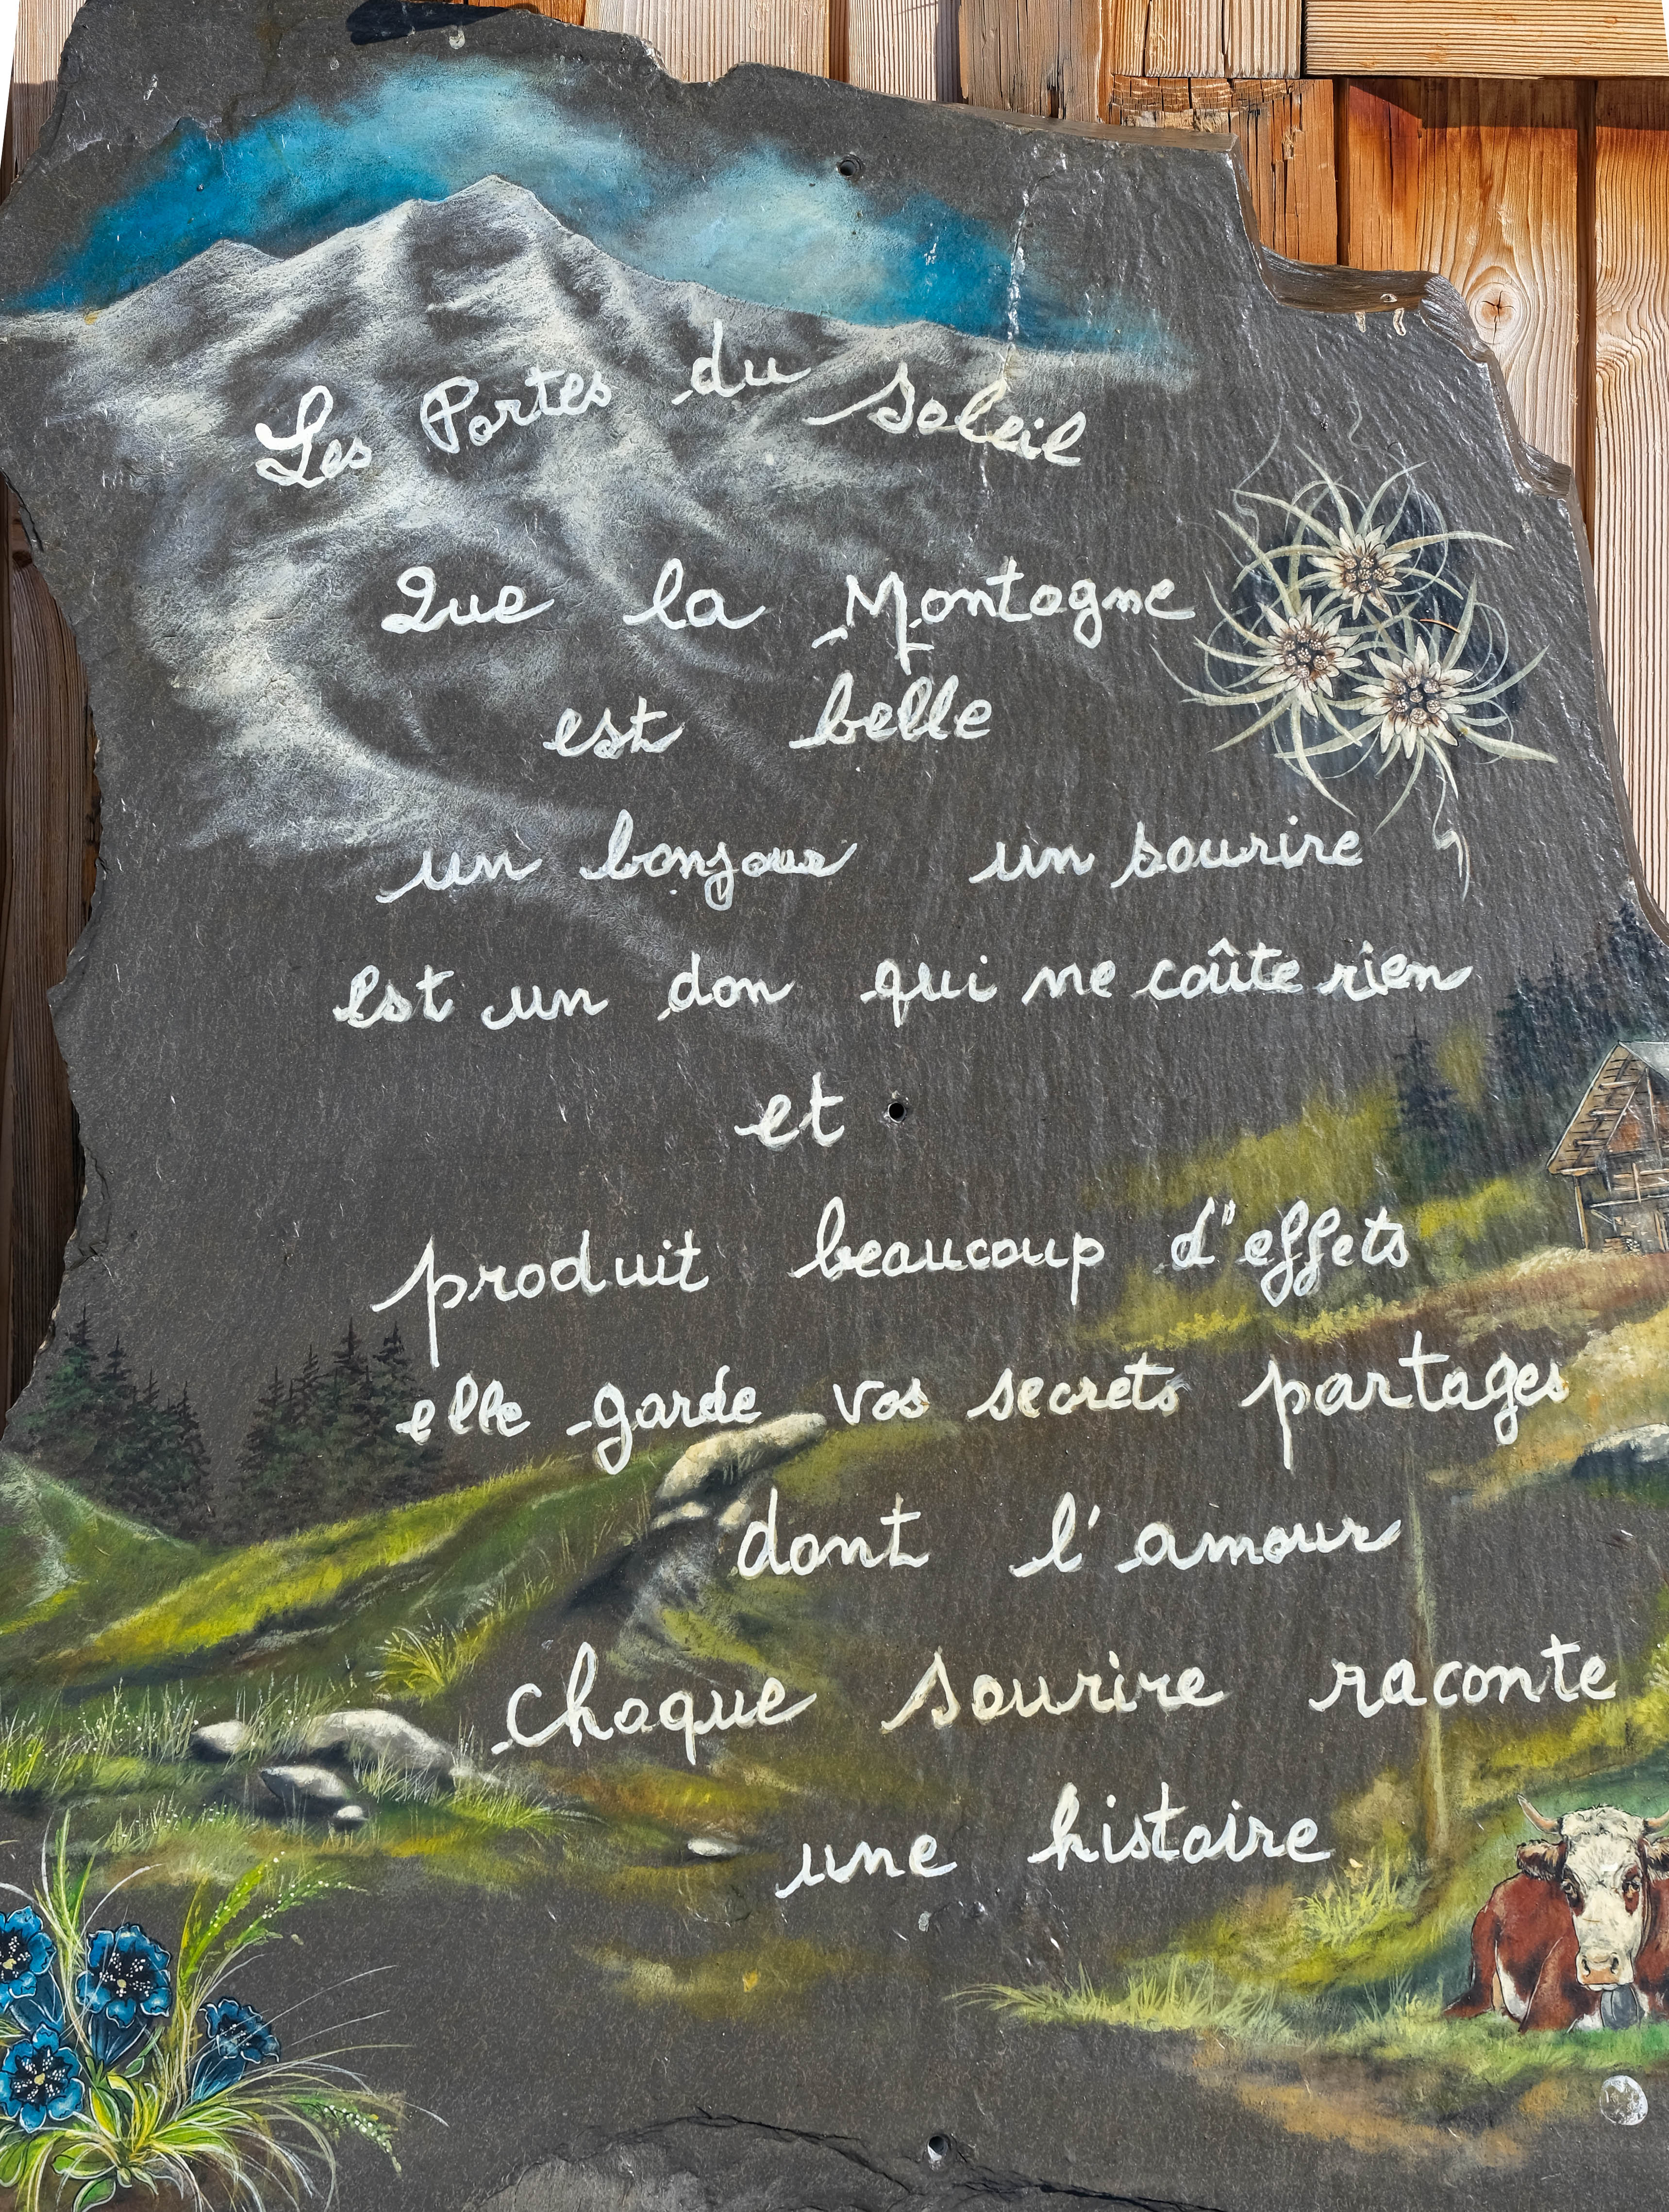 Les Portes du Soleil
Que la Montagne
est belle
un bonjour un sourire
est un don qui ne coûte rien
et
produit beaucoup d'effets
elle garde vos secrets partages
dont l'amour
chaque sourire raconte
une histoire